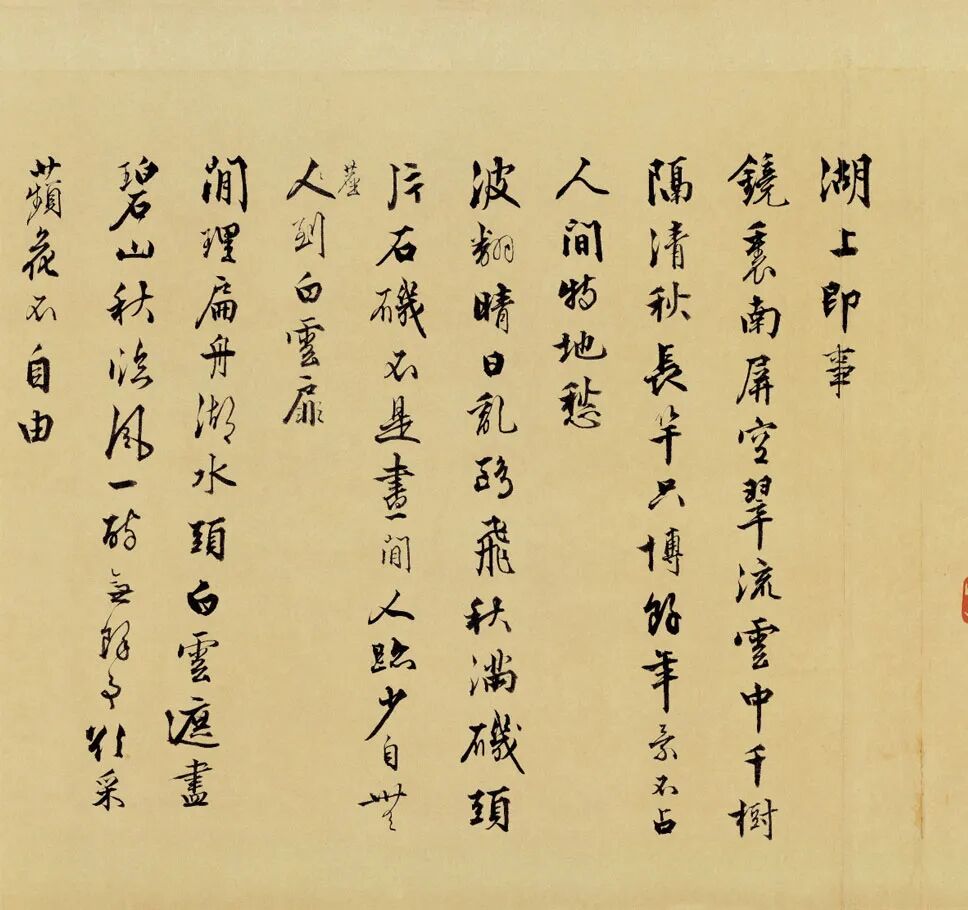 湖上即事
鏡裏南屏空翠流雲中千樹
隔清秋長竿只博餘年景不占
人間特地愁
波翻晴日亂鷗飛秋滿磯頭
片石磯不是畫閒人跡少自無
塵
人到白雲扉
閒理扁舟湖水頭白雲遮盡
碧山秋臨風一醉無餘事欲采
蘋花不自由